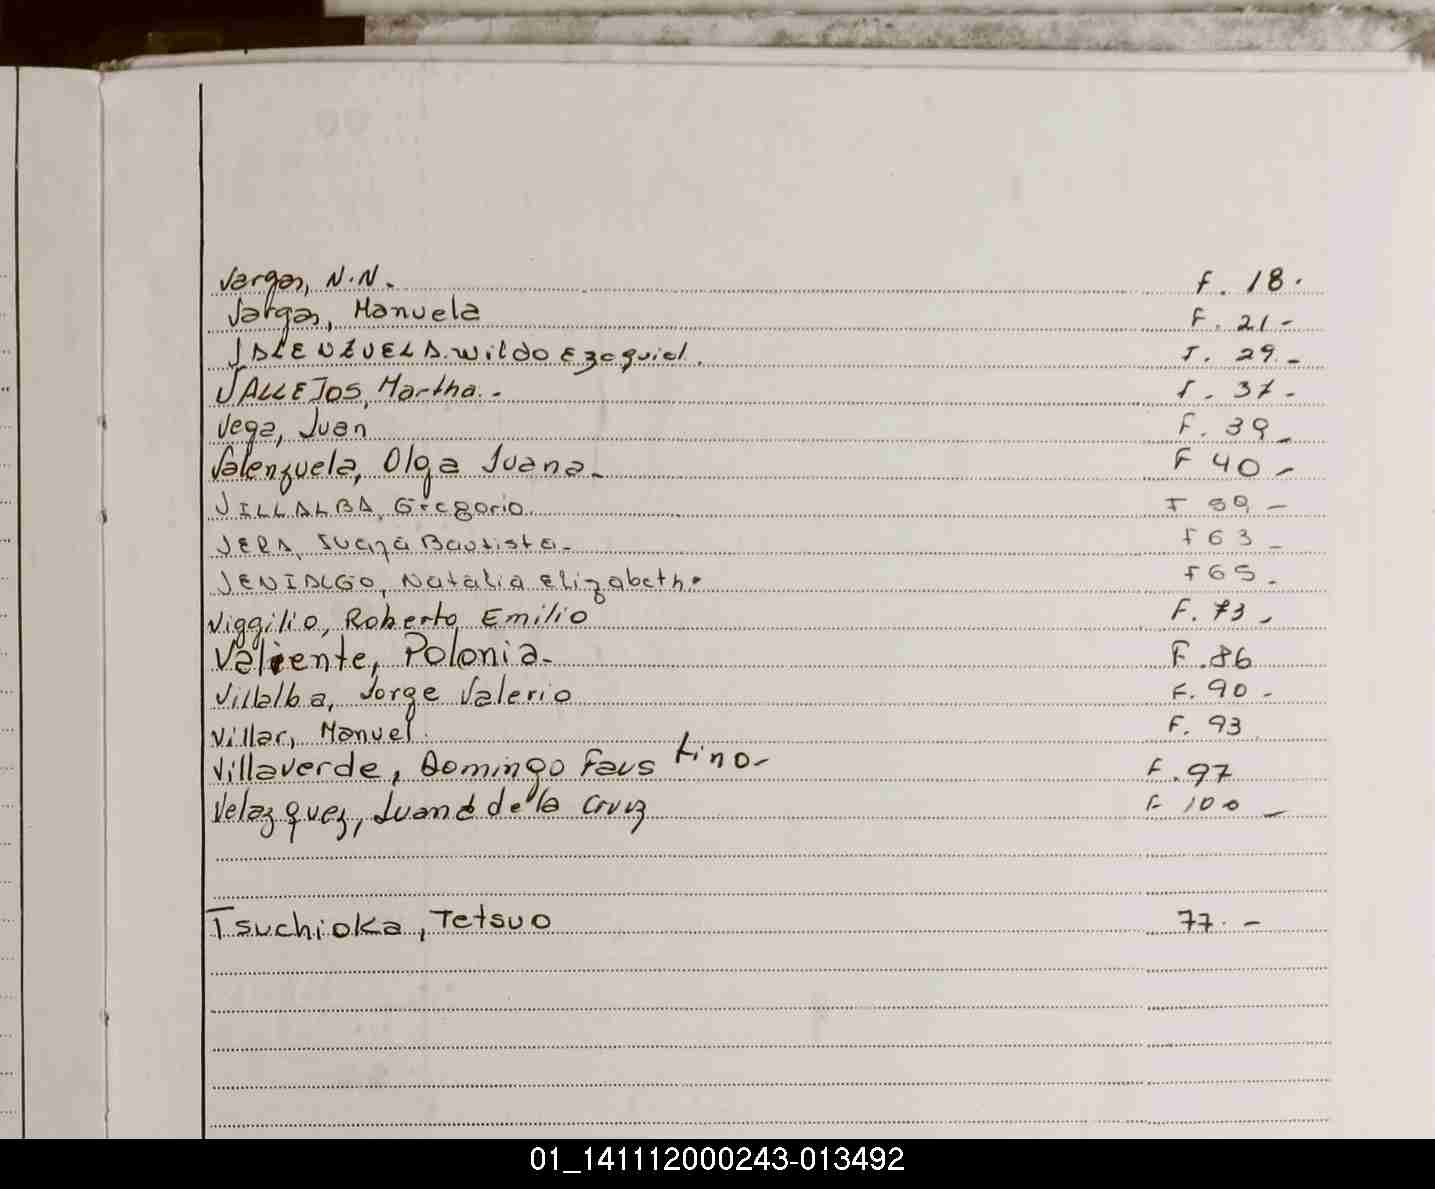 Vargas, N.N. F. 18.
Vargas, Manuela F. 21-
VALENZUELA. Wildo Ezequiel. F. 29-
VALLEJOS, Martha.- F. 37-
Vega, Juan F. 39-
Valenzuela, Olga Juana- F 40-
VILLALBA, Gregorio F 59-
VERA, Juana Bautista- F 63-
VENIALGO, Natalia Elizabeth. F 65.
Viggilio, Roberto Emilio F. 73-
Valiente, Polonia- F.86
Villalba, Jorge Valerio F. 90-
Villar, Manuel. F. 93
Villaverde, Domingo Faustino- F.97
Velazquez, Juana de la Cruz F 100-
Tsuchioka, Tetsuo 77.-
01_141112000243-013492